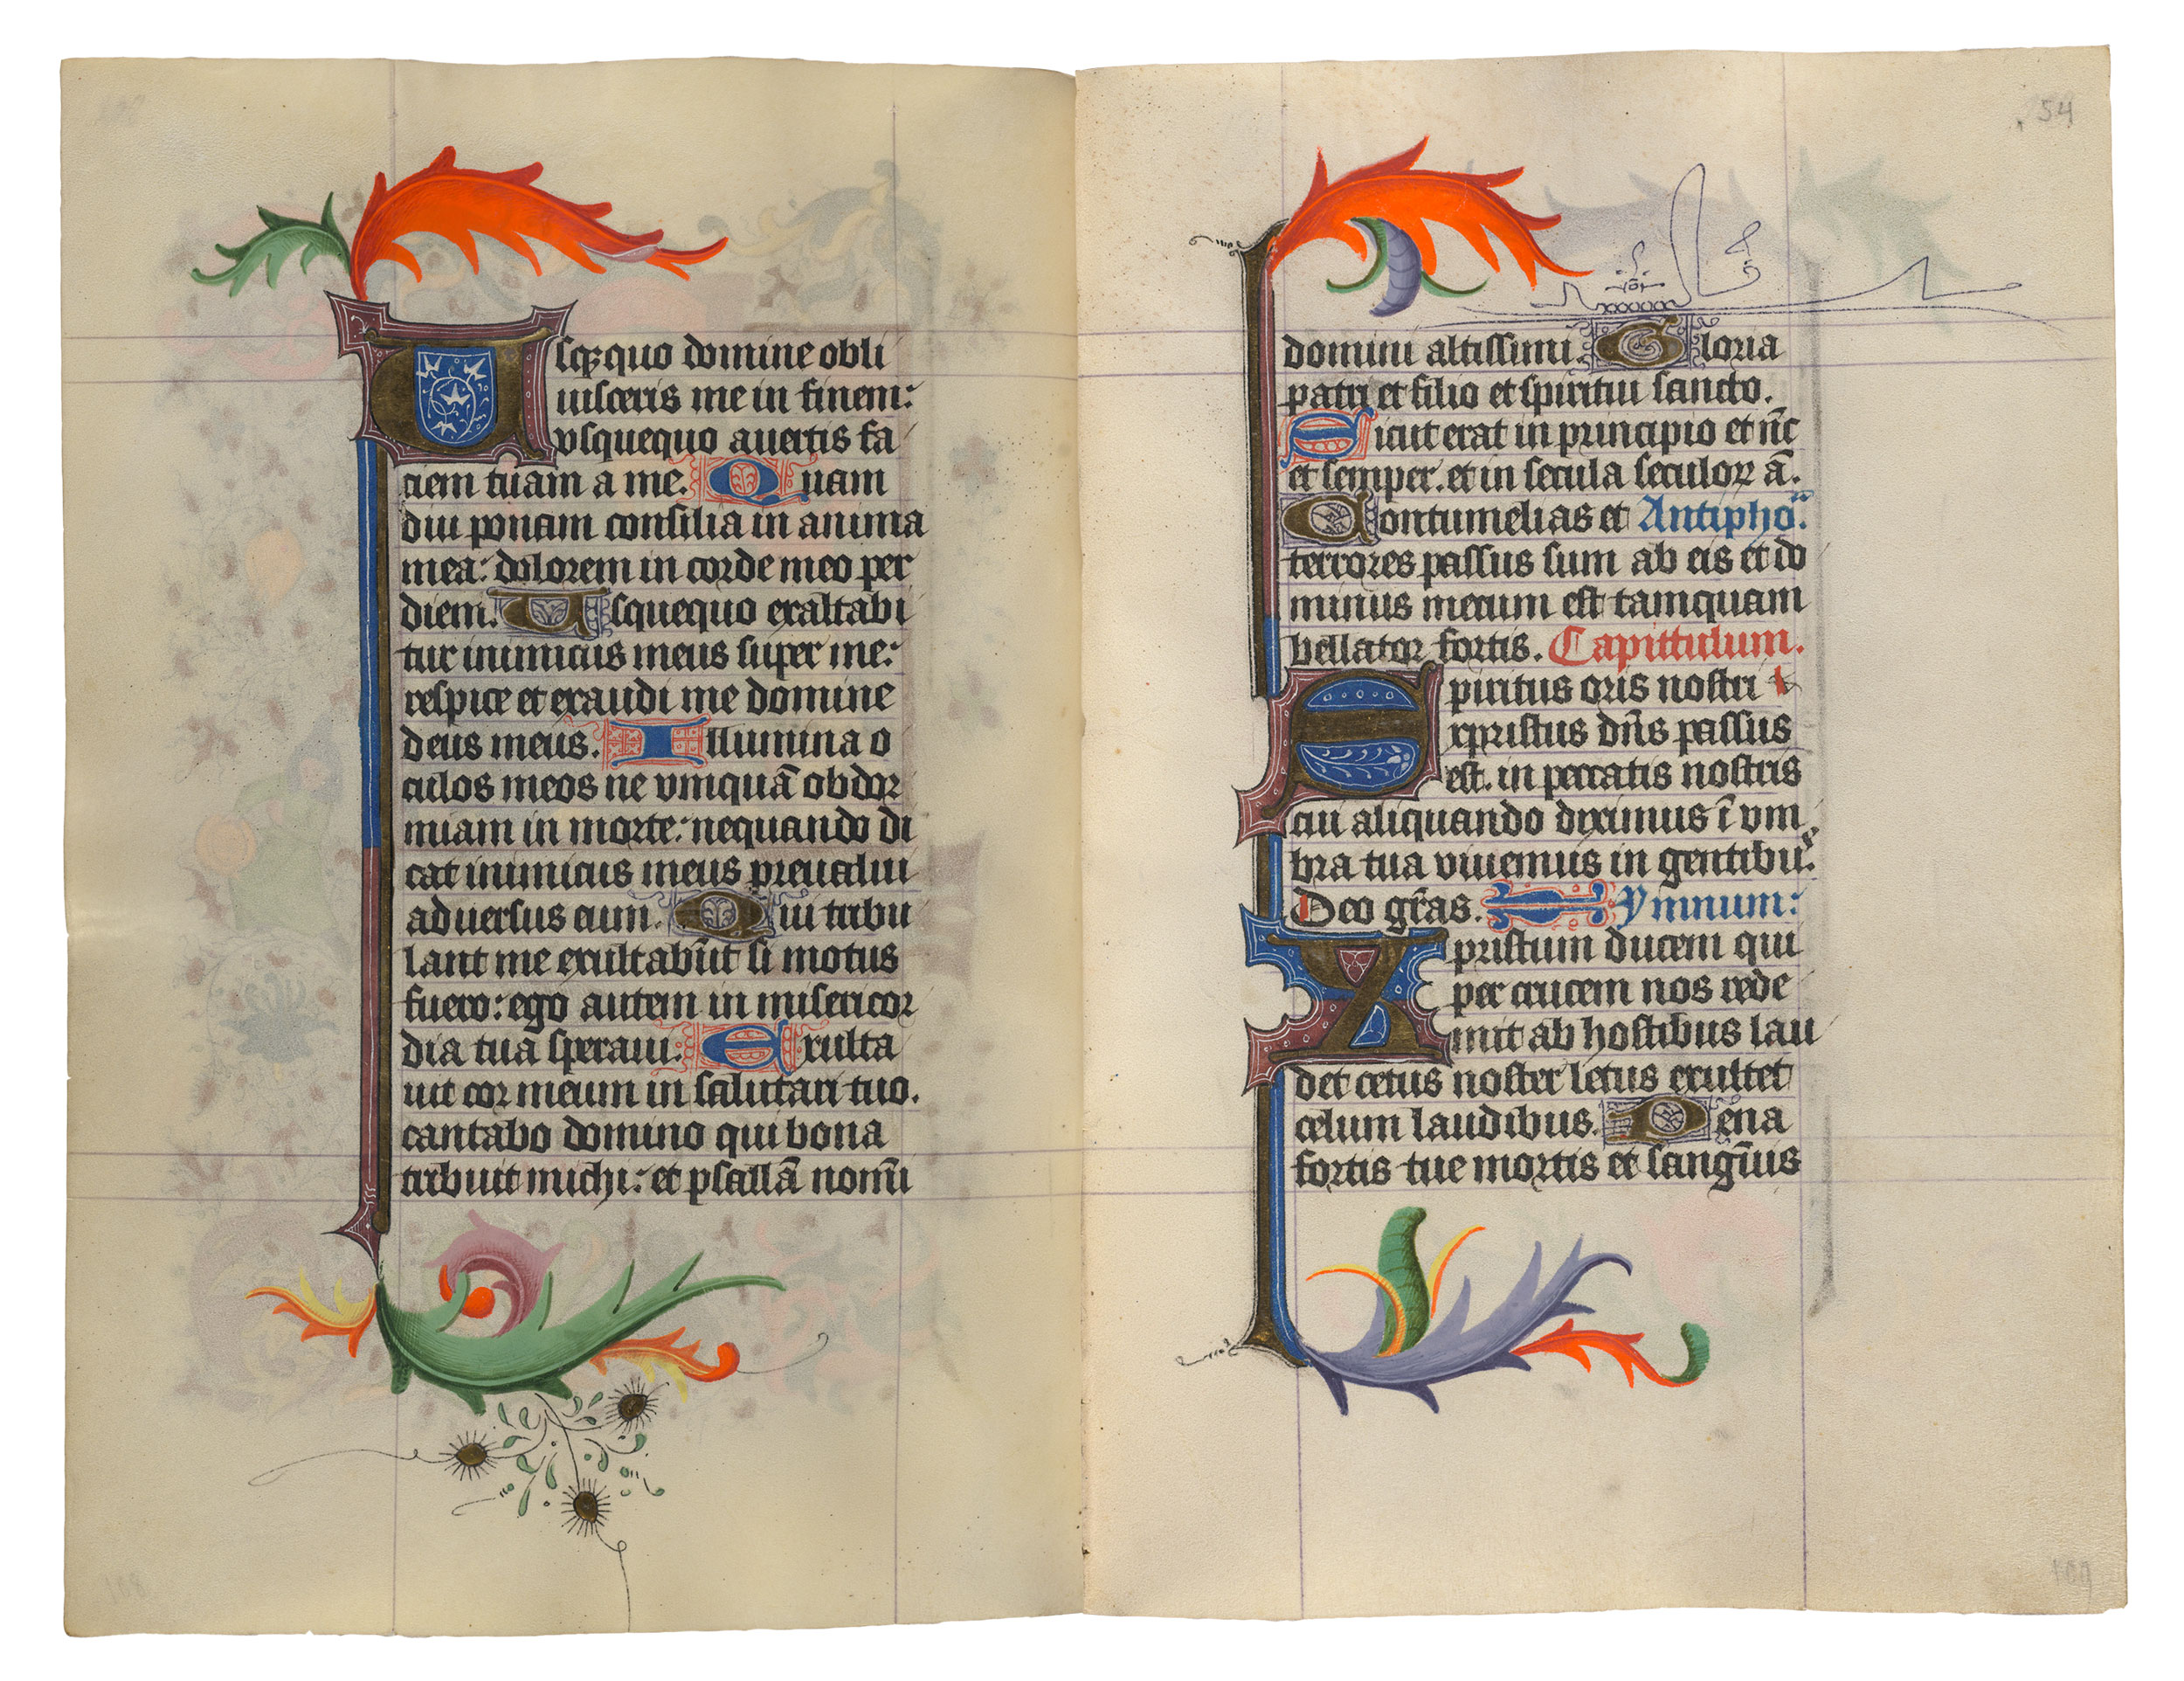 Usq3quo domine obli
uisceris me in finem:
vsquequo auertis fa
ciem tuam a me. Quam
diu ponam consilia in anima
mea: dolorem in corde meo per
diem. Usquequo exaltabi
tur inimicus meus super me:
respice et exaudi me domine
deus meus. Illumina o
culos meos ne vmquā obdor
miam in morte: nequando di
cat inimicus meus preualui
aduersus eum. Qui tribu
lant me exultabūt si motus
fuero: ego autem in misericor
dia tua speraui. Exulta
uit cor meum in salutari tuo.
cantabo domino qui bona
tribuit michi: et psallā nomī
54
domini altissimi. Gloria
patri et filio et spiritui sancto.
Sicut erat in principio et nc̄
et semper. et in secula seculoꝝ ā.
Contumelias et Antipho.
terrores passus sum ab eis et do
minus mecum est tamquam
bellator fortis. Capittulum.
Spiritus oris nostri
xpristus dn̄s passus
est. in peccatis nostris
cui aliquando diximus ī vm
bra tua viuemus in gentibus.
Deo gr̄as. Ymnum:
Xpristum ducem qui
per crucem nos rede
mit ab hostibus lau
det cetus noster letus exultet
celum laudibus. Pena
fortis tue mortis et sangīus
109